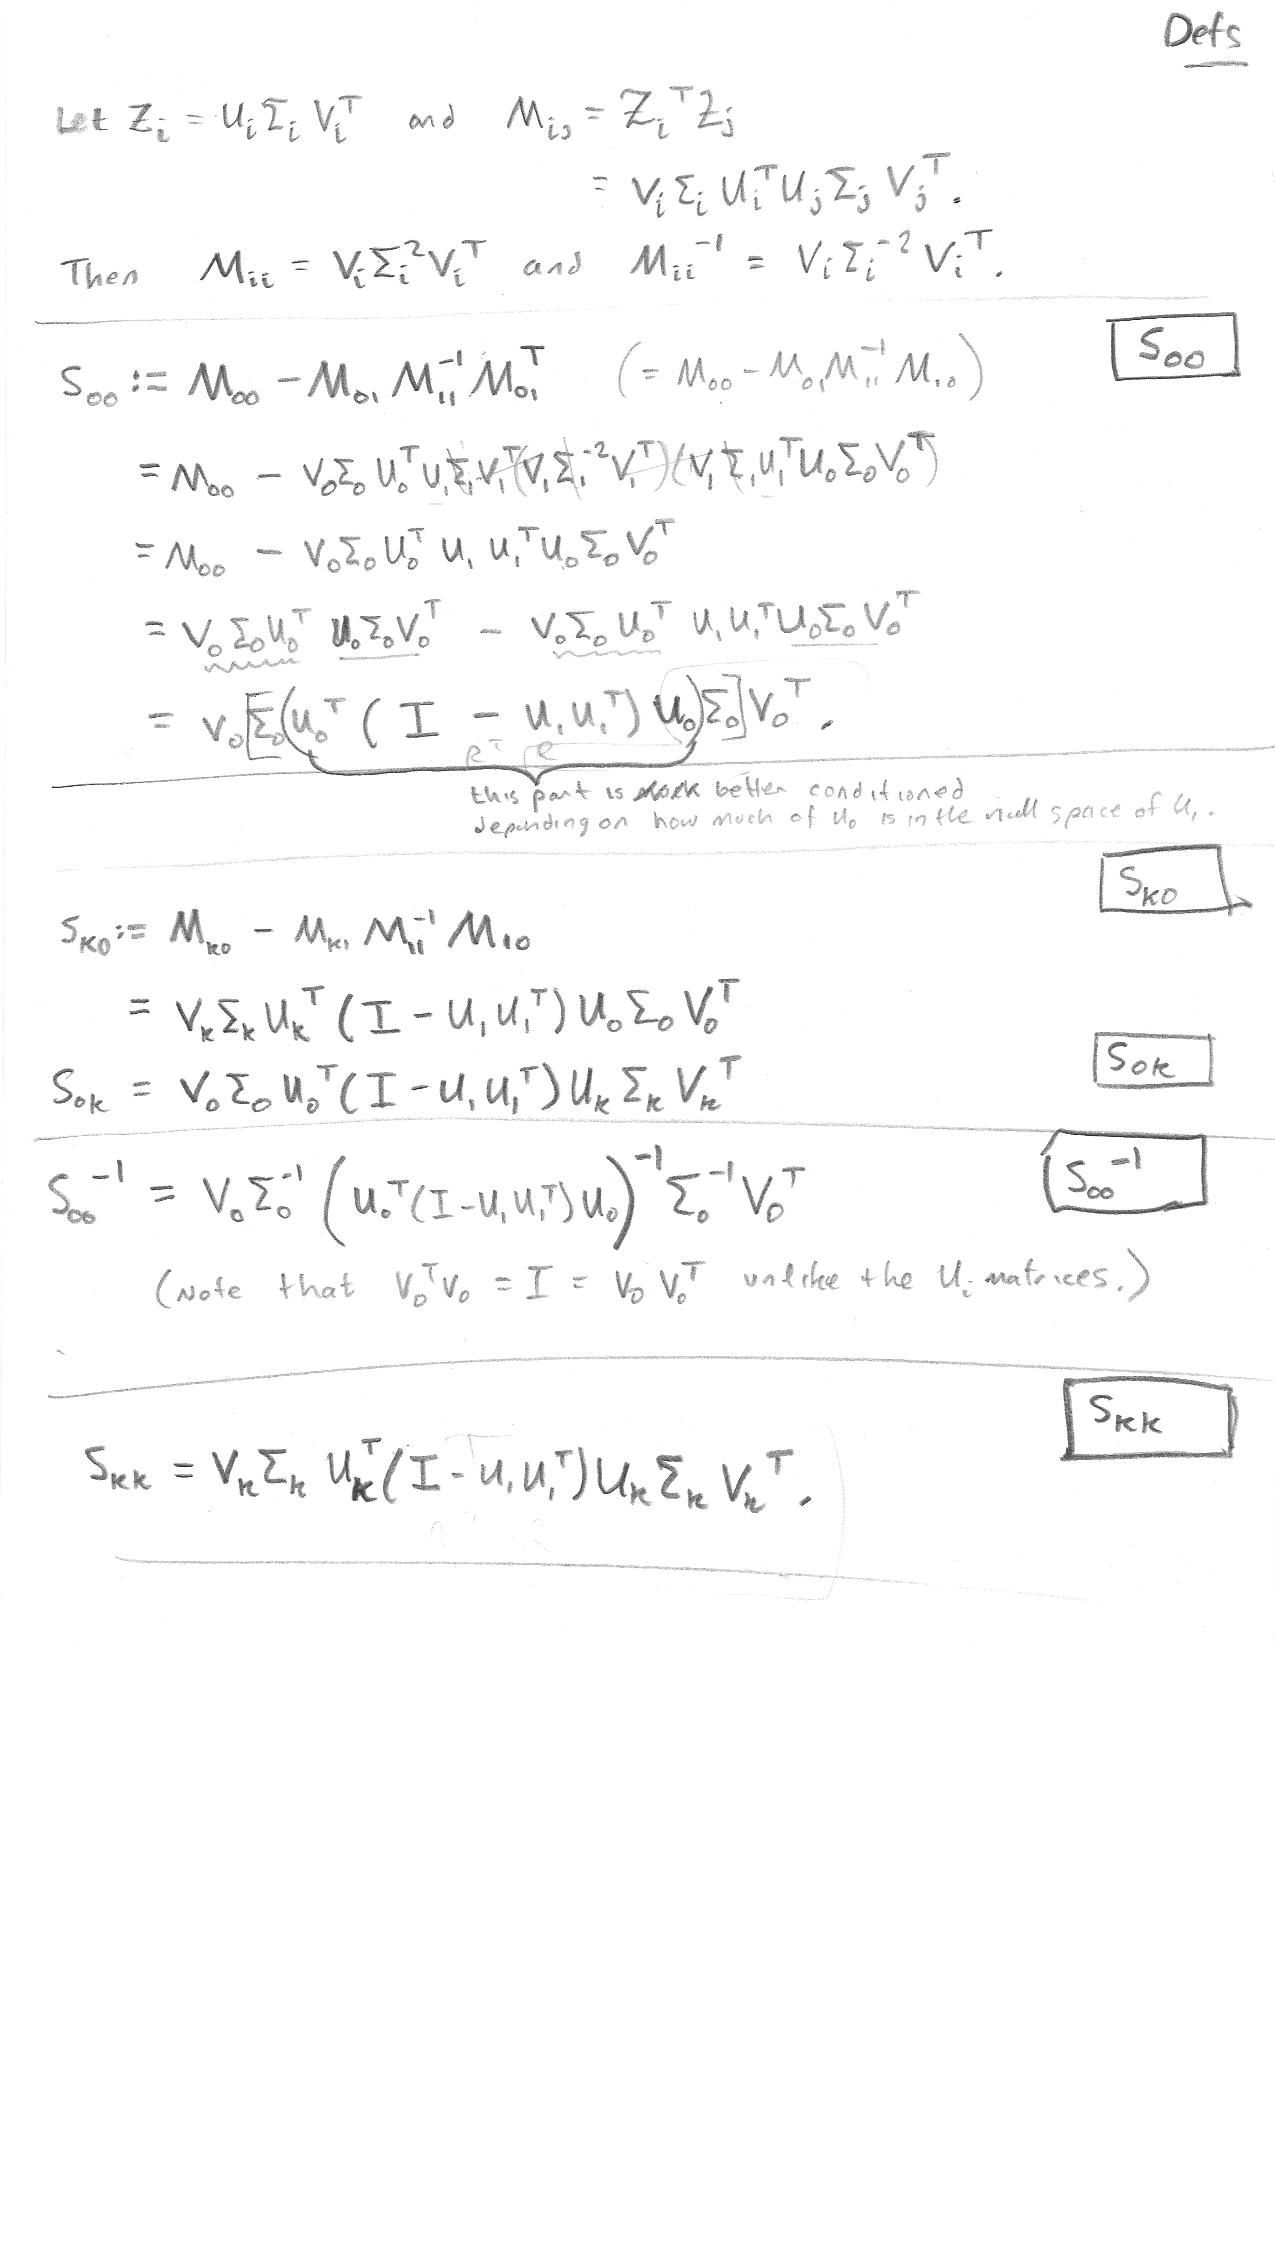 Defs
Let Z_i = U_i Σ_i V_i^T and M_ij = Z_i^T Z_j
= V_i Σ_i U_i^T U_j Σ_j V_j^T.
Then M_ii = V_i Σ_i^2 V_i^T and M_ii^-1 = V_i Σ_i^-2 V_i^T.
S_00
S_00 := M_00 - M_01 M_11^-1 M_01^T (= M_00 - M_01 M_11^-1 M_10)
= M_00 - V_0 Σ_0 U_0^T U_1 Σ_1 V_1^T (V_1 Σ_1^-2 V_1^T)(V_1 Σ_1 U_1^T U_0 Σ_0 V_0^T)
= M_00 - V_0 Σ_0 U_0^T U_1 U_1^T U_0 Σ_0 V_0^T
= V_0 Σ_0 U_0^T U_0 Σ_0 V_0^T - V_0 Σ_0 U_0^T U_1 U_1^T U_0 Σ_0 V_0^T
= V_0 [Σ_0 (U_0^T (I - U_1 U_1^T) U_0) Σ_0] V_0^T.
this part is better conditioned
depending on how much of U_0 is in the null space of U_1.
S_k0
S_k0 := M_k0 - M_k1 M_11^-1 M_10
= V_k Σ_k U_k^T (I - U_1 U_1^T) U_0 Σ_0 V_0^T
S_0k
S_0k = V_0 Σ_0 U_0^T (I - U_1 U_1^T) U_k Σ_k V_k^T
S_00^-1
S_00^-1 = V_0 Σ_0^-1 (U_0^T (I - U_1 U_1^T) U_0)^-1 Σ_0^-1 V_0^T
(Note that V_0^T V_0 = I = V_0 V_0^T unlike the U_i matrices.)
S_kk
S_kk = V_k Σ_k U_k^T (I - U_1 U_1^T) U_k Σ_k V_k^T.